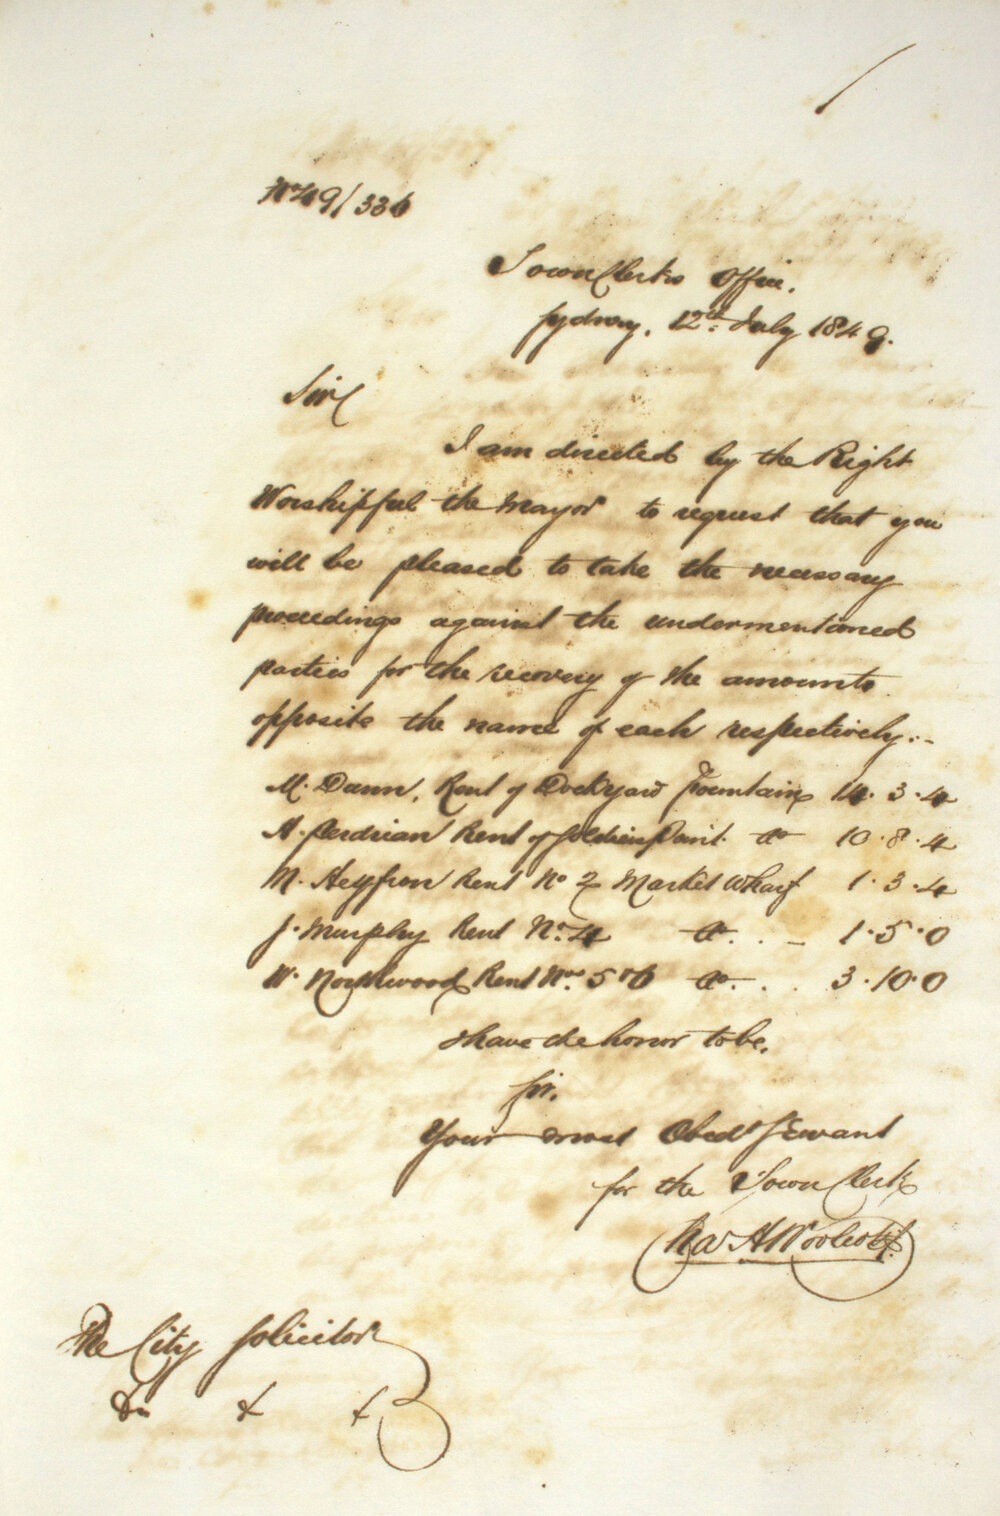 No 49/336
Town Clerks Office.
Sydney. 12th July 1849.
Sir
I am directed by the Right
Worshipful the Mayor to request that you
will be pleased to take the necessary
proceedings against the undermentioned
parties for the recovery of the amounts
opposite the name of each respectively:-
M. Dunn. Rent of Dockyard Fountain 14. 3. 4
H. Perdriau Rent of Soldiers Point do 10. 8. 4
M. Heyfron Rent No 2 Market Wharf 1. 3. 4
J. Murphy Rent No. 4 do. . - 1. 5. 0
W. Northwood Rent Nos. 5 & 6 do. . . 3. 10. 0
I have the honor to be,
Sir.
Your most Obedt Servant
for the Town Clerk
Chas H Woolcott
The City Solicitor
&c & &